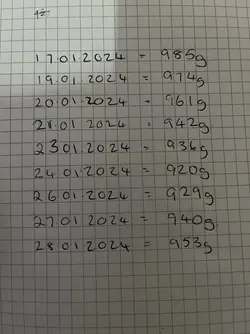 17.01.2024 = 985g
19.01.2024 = 974g
20.01.2024 = 961g
21.01.2024 = 942g
23.01.2024 = 936g
24.01.2024 = 920g
26.01.2024 = 929g
27.01.2024 = 940g
28.01.2024 = 953g